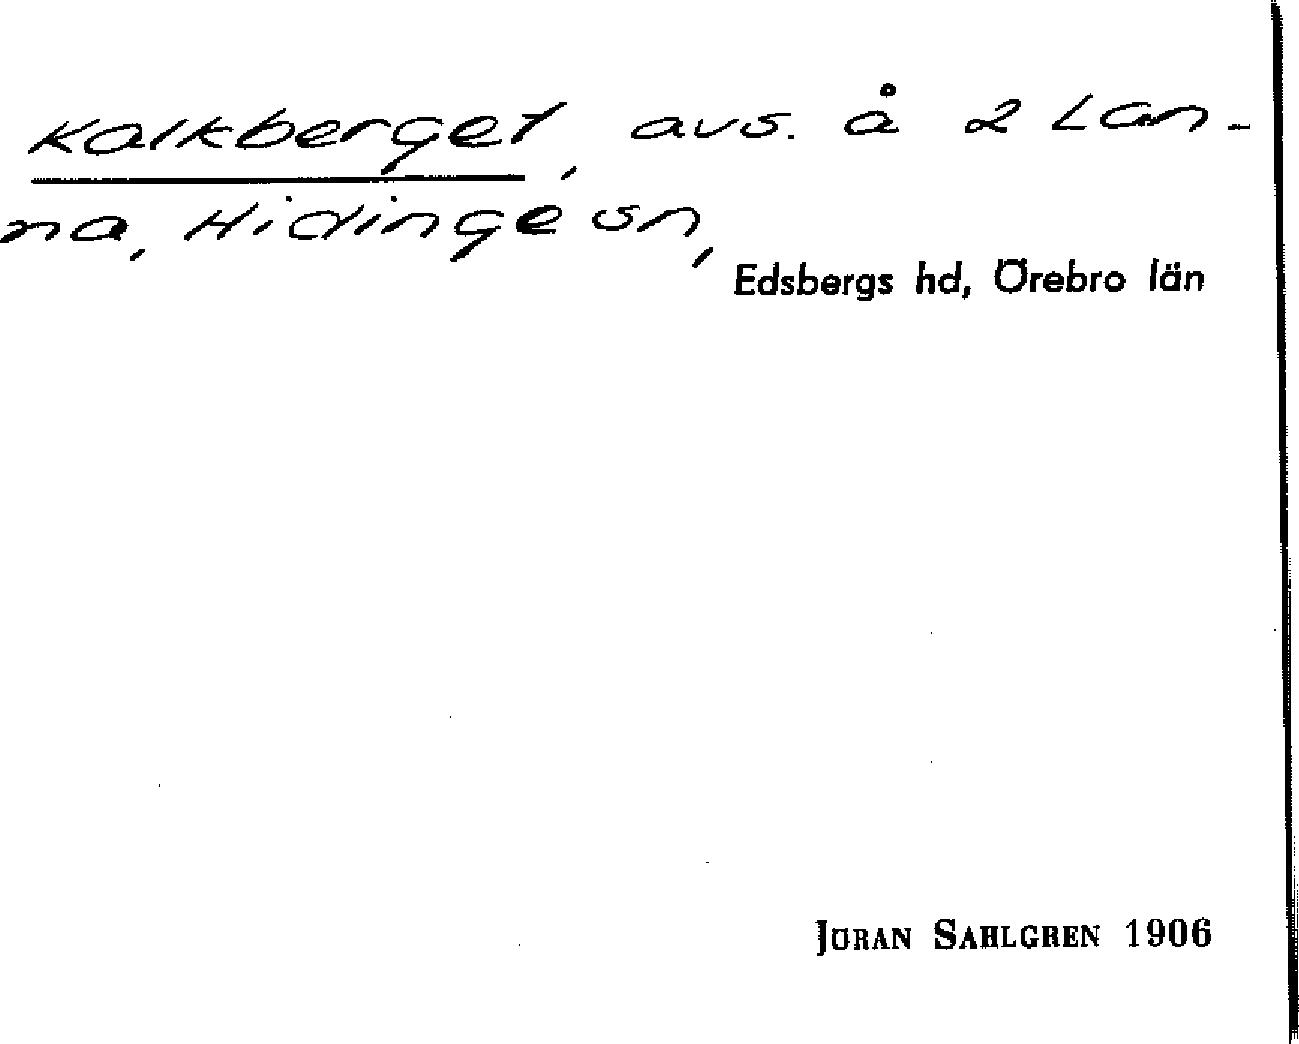 Kalkberget, avs. å 2 Lan-
na, Hidinge sn,
Edsbergs hd, Örebro län
JÖRAN SAHLGREN 1906